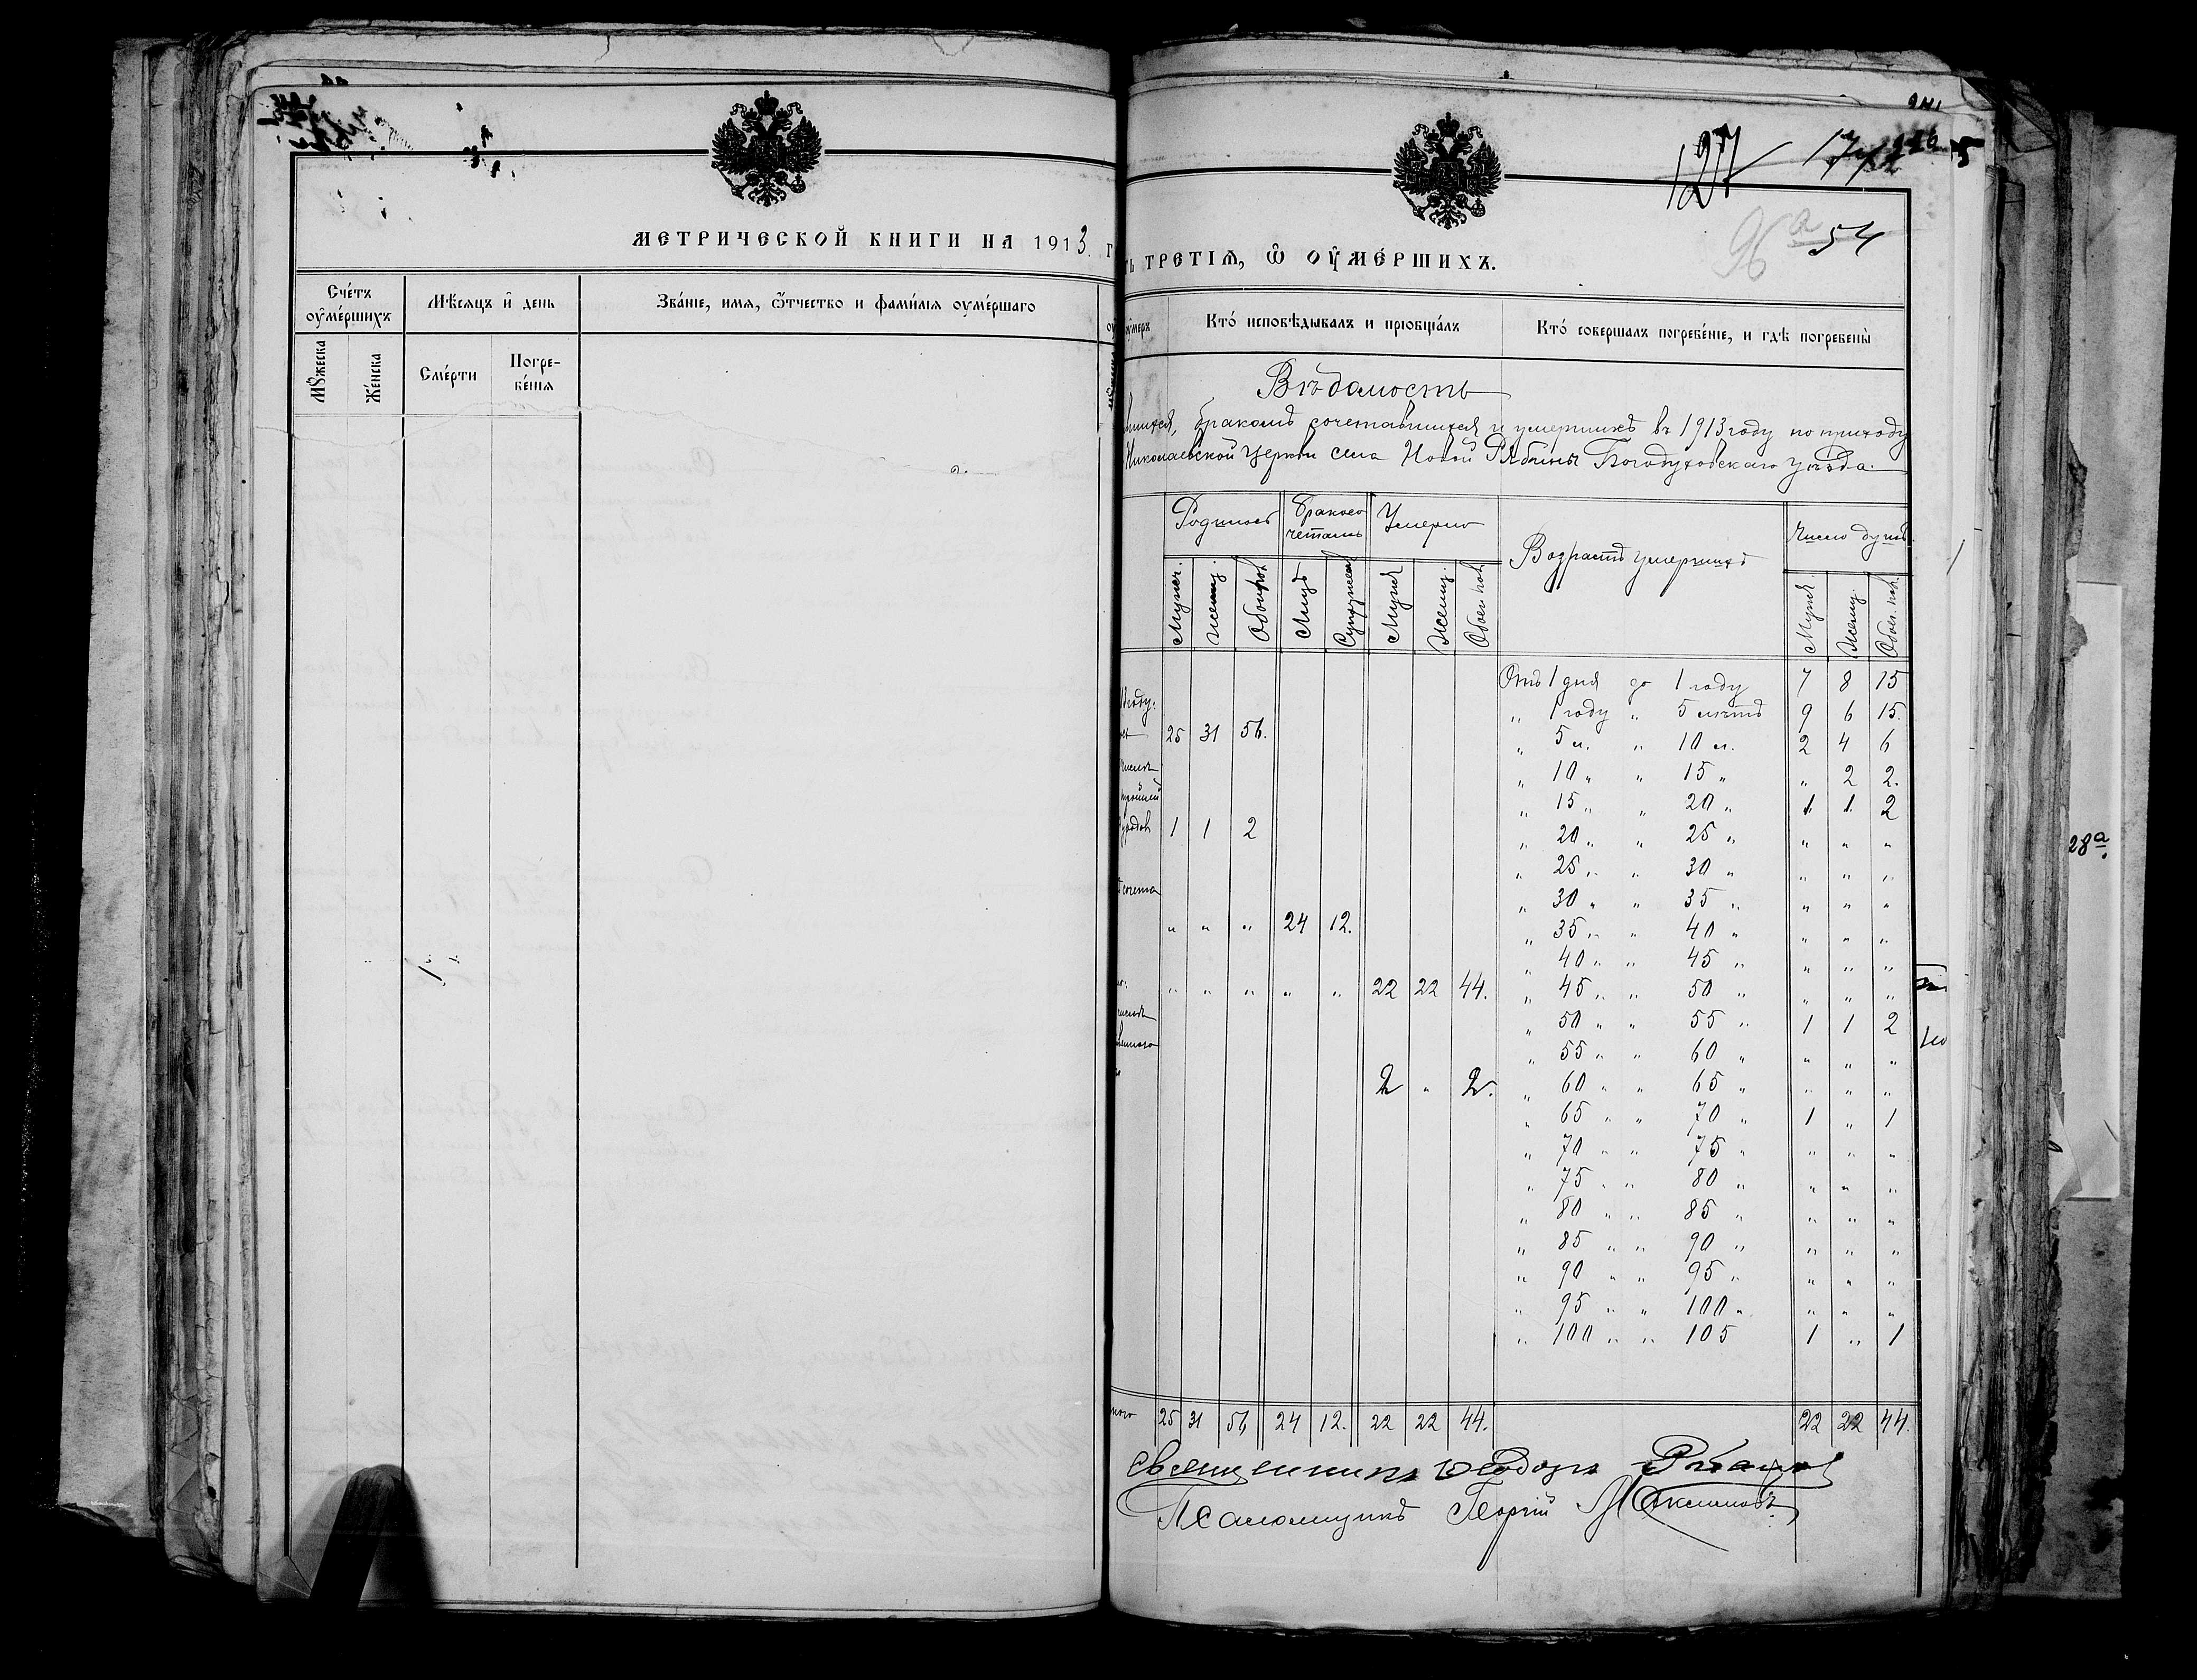 МЕТРИЧЕСКОЙ КНИГИ НА 1913. Г
Счетъ оумершихъ
Мѣсяцъ и день
Званіе, имя, ѿтчество и фамилія оумершаго
Мꙋжеска
Женска
Смерти
Погре-
бенія
127
54
96а
ТРЕТІЯ, Ѿ ОУМЕРШИХЪ.
оумеръ
Кто исповѣдывалъ и пріобщалъ
Кто совершалъ погребеніе, и гдѣ погребены
Вѣдомость
бракомъ сочетавшихся и умершихъ въ 1913 году по приходу
Николаевской церкви села Новой Рябины Богодуховскаго уѣзда.
Родилось
Бракосо
четалось
Умерло
Возрастъ умершихъ
Число душъ
Мужск.
Женщ.
Обоихъ пол.
Лицъ
Супружествъ
Мужск
Женщ.
Обоег. пол.
Мужск.
Женщ.
Обоег. пол.
Отъ 1 дня до 1 году 7 8 15
году.
„ 1 году „ 5 лѣтъ 9 6 15.
25 31 56.
„ 5 л. „ 10 л. 2 4 6
числѣ
„ 10 „ „ 15 „ „ 2 2.
„ 15 „ „ 20 „ 1 1. 2
1 1 2
„ 20 „ „ 25 „ „ „ „
„ 25 „ „ 30 „ „ „ „
сочета
„ 30 „ „ 35 „ „ „ „
„ „ „ 24 12.
„ 35 „ „ 40 „ „ „ „
„ 40 „ „ 45 „ „ „ „
„ „ „ „ „ 22 22 44.
„ 45 „ „ 50 „ „ „ „
числѣ
„ 50 „ „ 55 „ 1 1 2
„ 55 „ „ 60 „ „ „ „
2 „ 2.
„ 60 „ „ 65 „ „ „ „
„ 65 „ „ 70 „ 1 „ 1
„ 70 „ „ 75 „ „ „ „
„ 75 „ „ 80 „ „ „ „
„ 80 „ „ 85 „ „ „ „
„ 85 „ „ 90 „ „ „ „
„ 90 „ „ 95 „ „ „ „
„ 95 „ „ 100 „ „ „ „
„ 100 „ „ 105 1 „ 1
25 31 56 24 12. 22 22 44. 22 22 44.
Священникъ Ѳеодоръ
Псаломщикъ Георгій Максимовъ
28а.